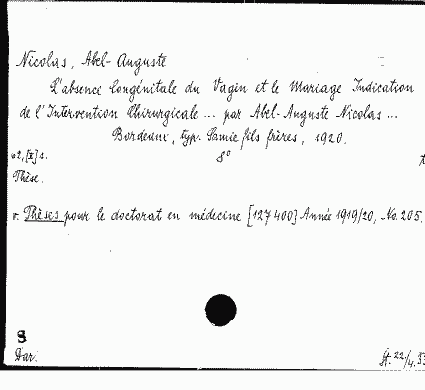 Nicolas, Abel-Auguste
L'absence Congénitale du Vagin et le Mariage Indication
de l'Intervention Chirurgicale ... par Abel-Auguste Nicolas ...
Bordeaux, typ. Samie fils frères, 1920.
62, [I] s. 8°
Thèse.
v. Thèses pour le doctorat en médecine [127400] Année 1919/20, No. 205.
Dar. St. 22/4.